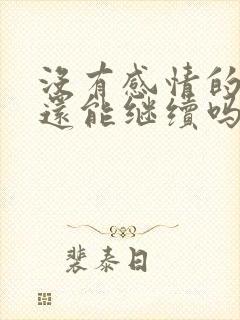 没有感情的
还能继续吗
裴泰日